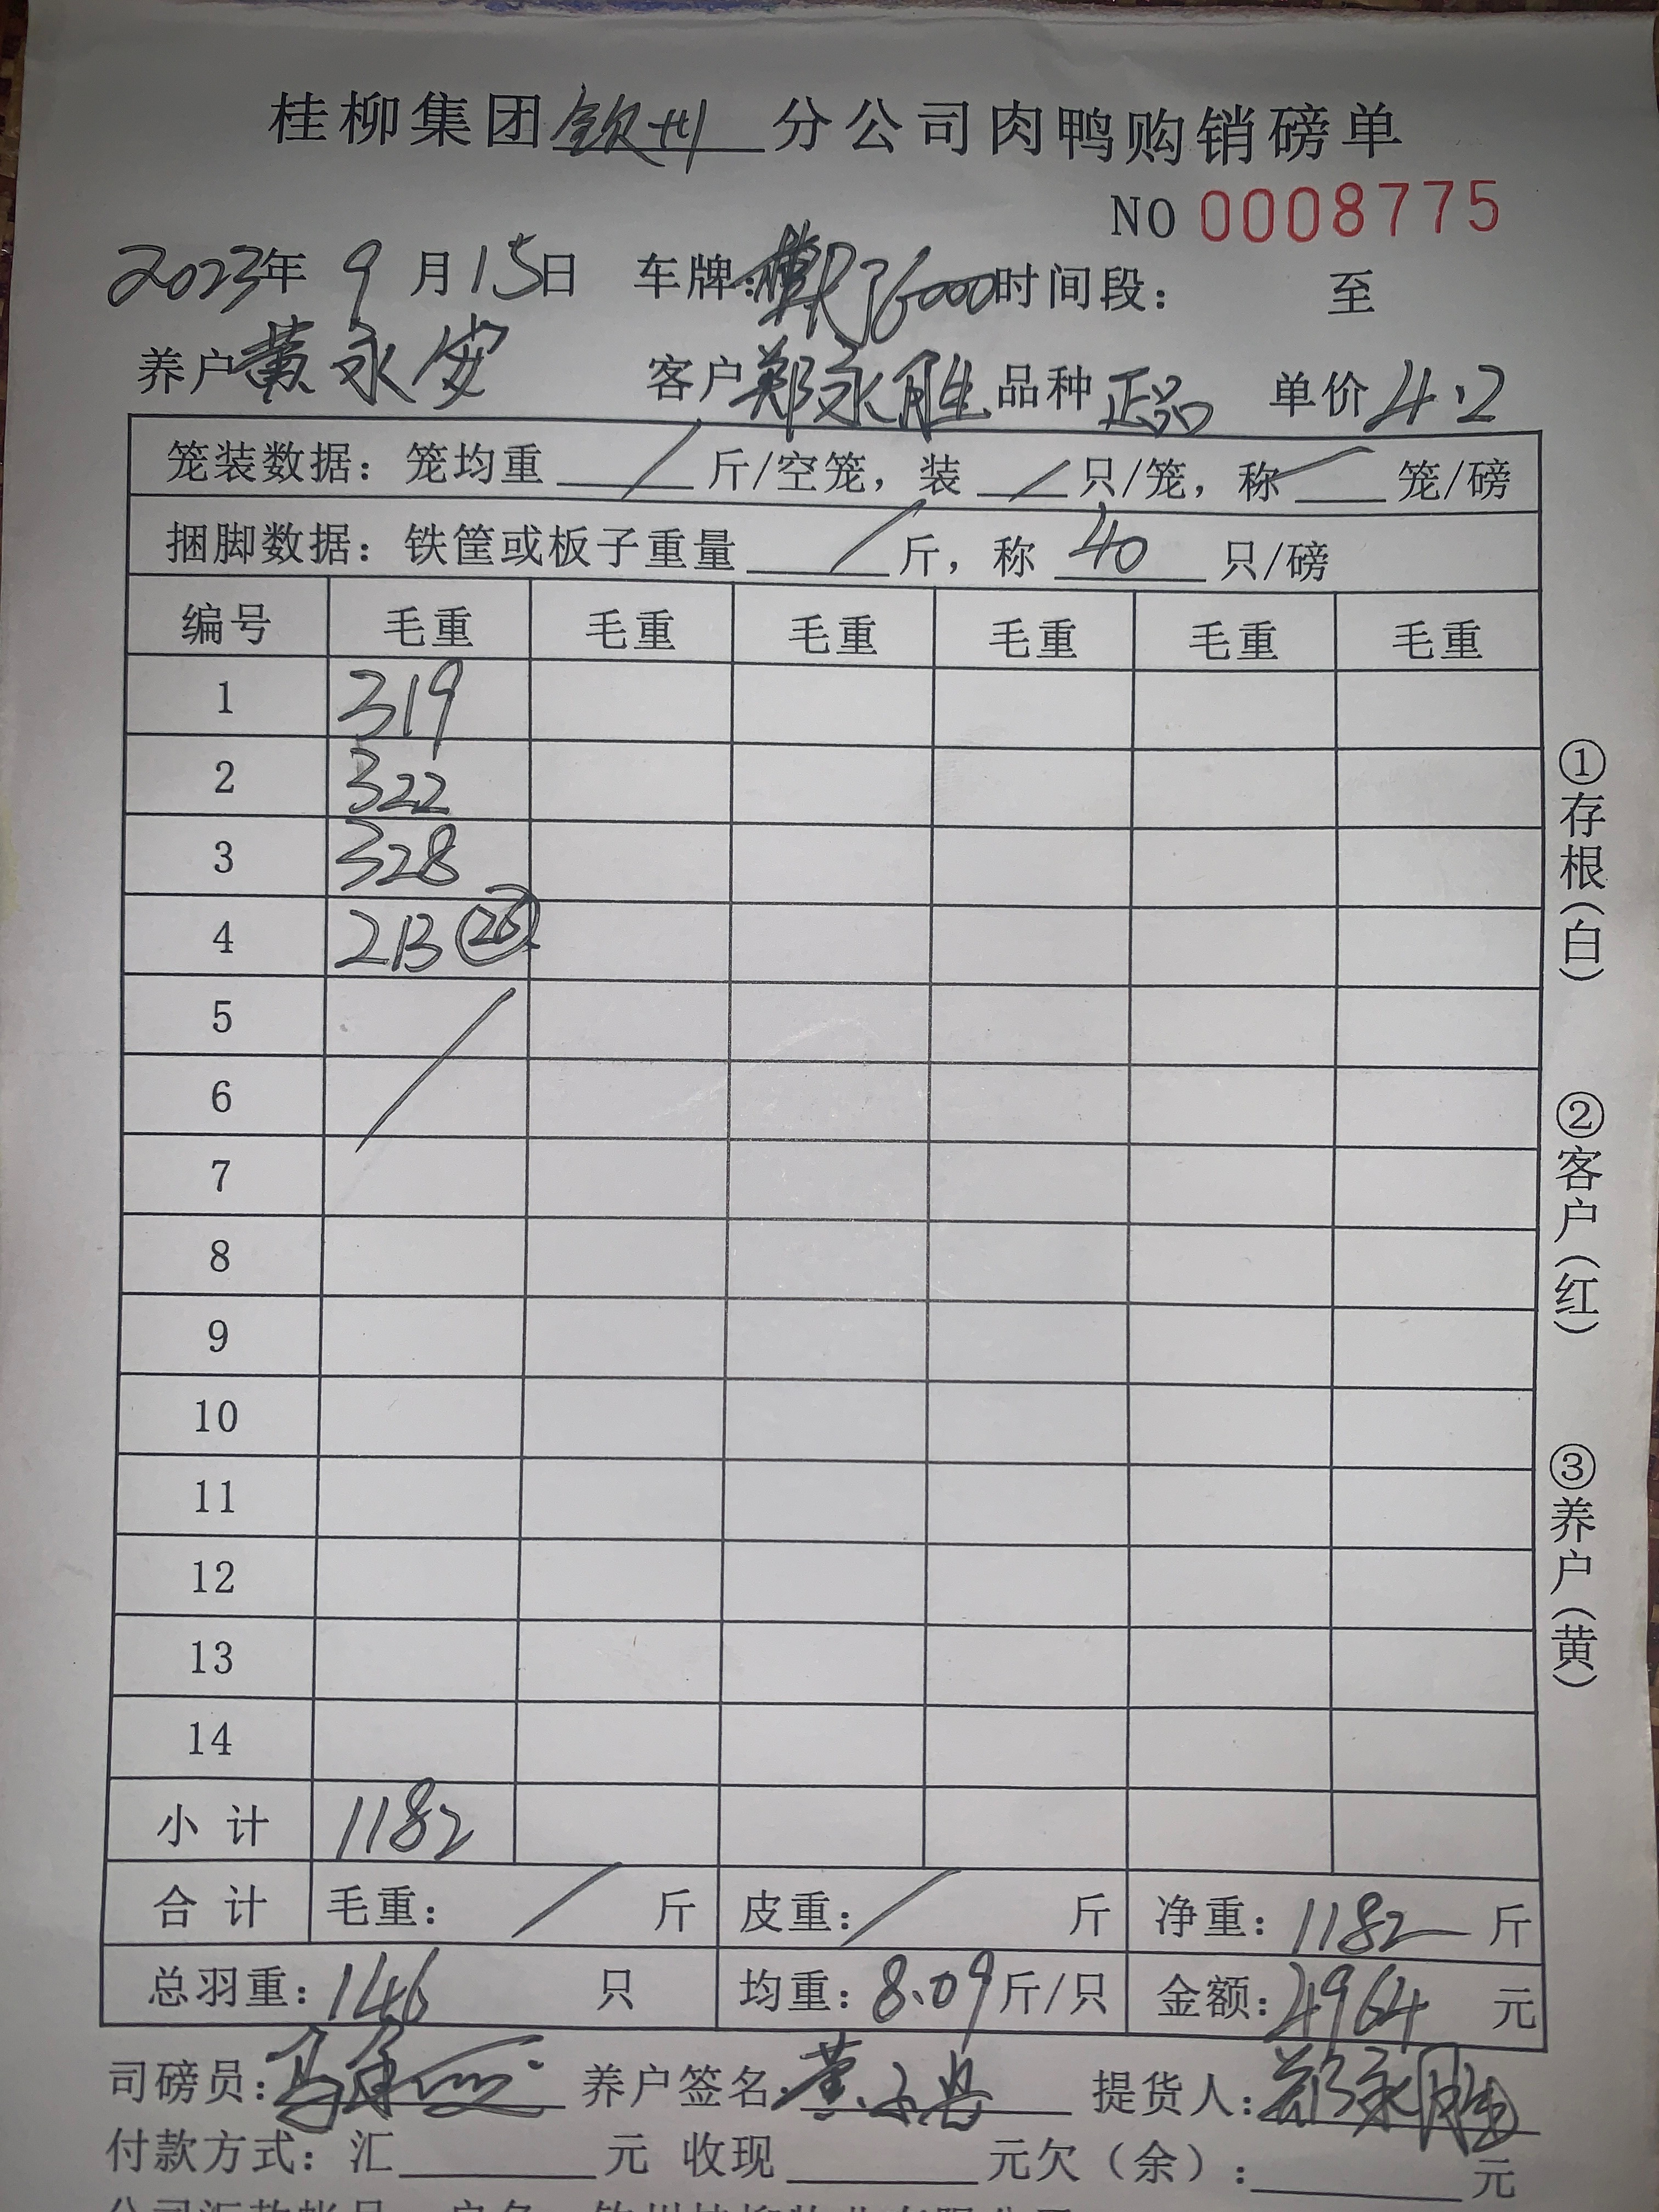 桂柳集团钦州分公司肉鸭购销磅单
NO 0008775
2023年 9 月 15日 车牌: 36000 时间段: 至
养户 黄永安 客户 郑永胜 品种 正品 单价 4.2
笼装数据: 笼均重 / 斤/空笼, 装 / 只/笼, 称 / 笼/磅
捆脚数据: 铁筐或板子重量 / 斤, 称 40 只/磅
编号 毛重 毛重 毛重 毛重 毛重 毛重
1 319
2 322
3 328
4 213 (26)
5
6
7
8
9
10
11
12
13
14
小计 1182
合计 毛重: / 斤 皮重: / 斤 净重: 1182 斤
总羽重: 146 只 均重: 8.09 斤/只 金额: 4964 元
司磅员: 养户签名: 黄永安 提货人: 郑永胜
付款方式: 汇 元 收现 元欠(余): 元
①存根(白)
②客户(红)
③养户(黄)